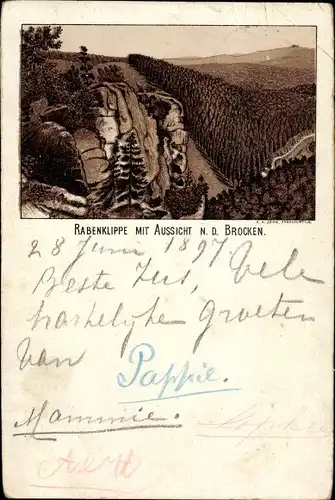 RABENKLIPPE MIT AUSSICHT N. D. BROCKEN.
28 Juni 1897
Beste Zus, Vele
hartelyke Groeten
van
Pappie.
Mammie.
Sophie